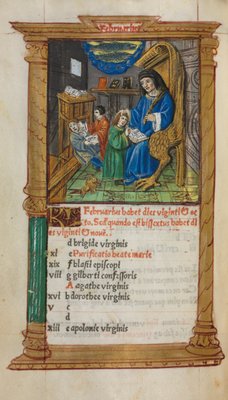 Februarius
Februarius habet dies viginti Octo. Sed quando est bissextus habet dies viginti & noue.
d brigide virginis
xi e Purificatio beate marie
xix f blasii episcopi
viii g gilberti confessoris
A agathe virginis
xvi b dorothee virginis
v c
d
xiii e apolonie virginis